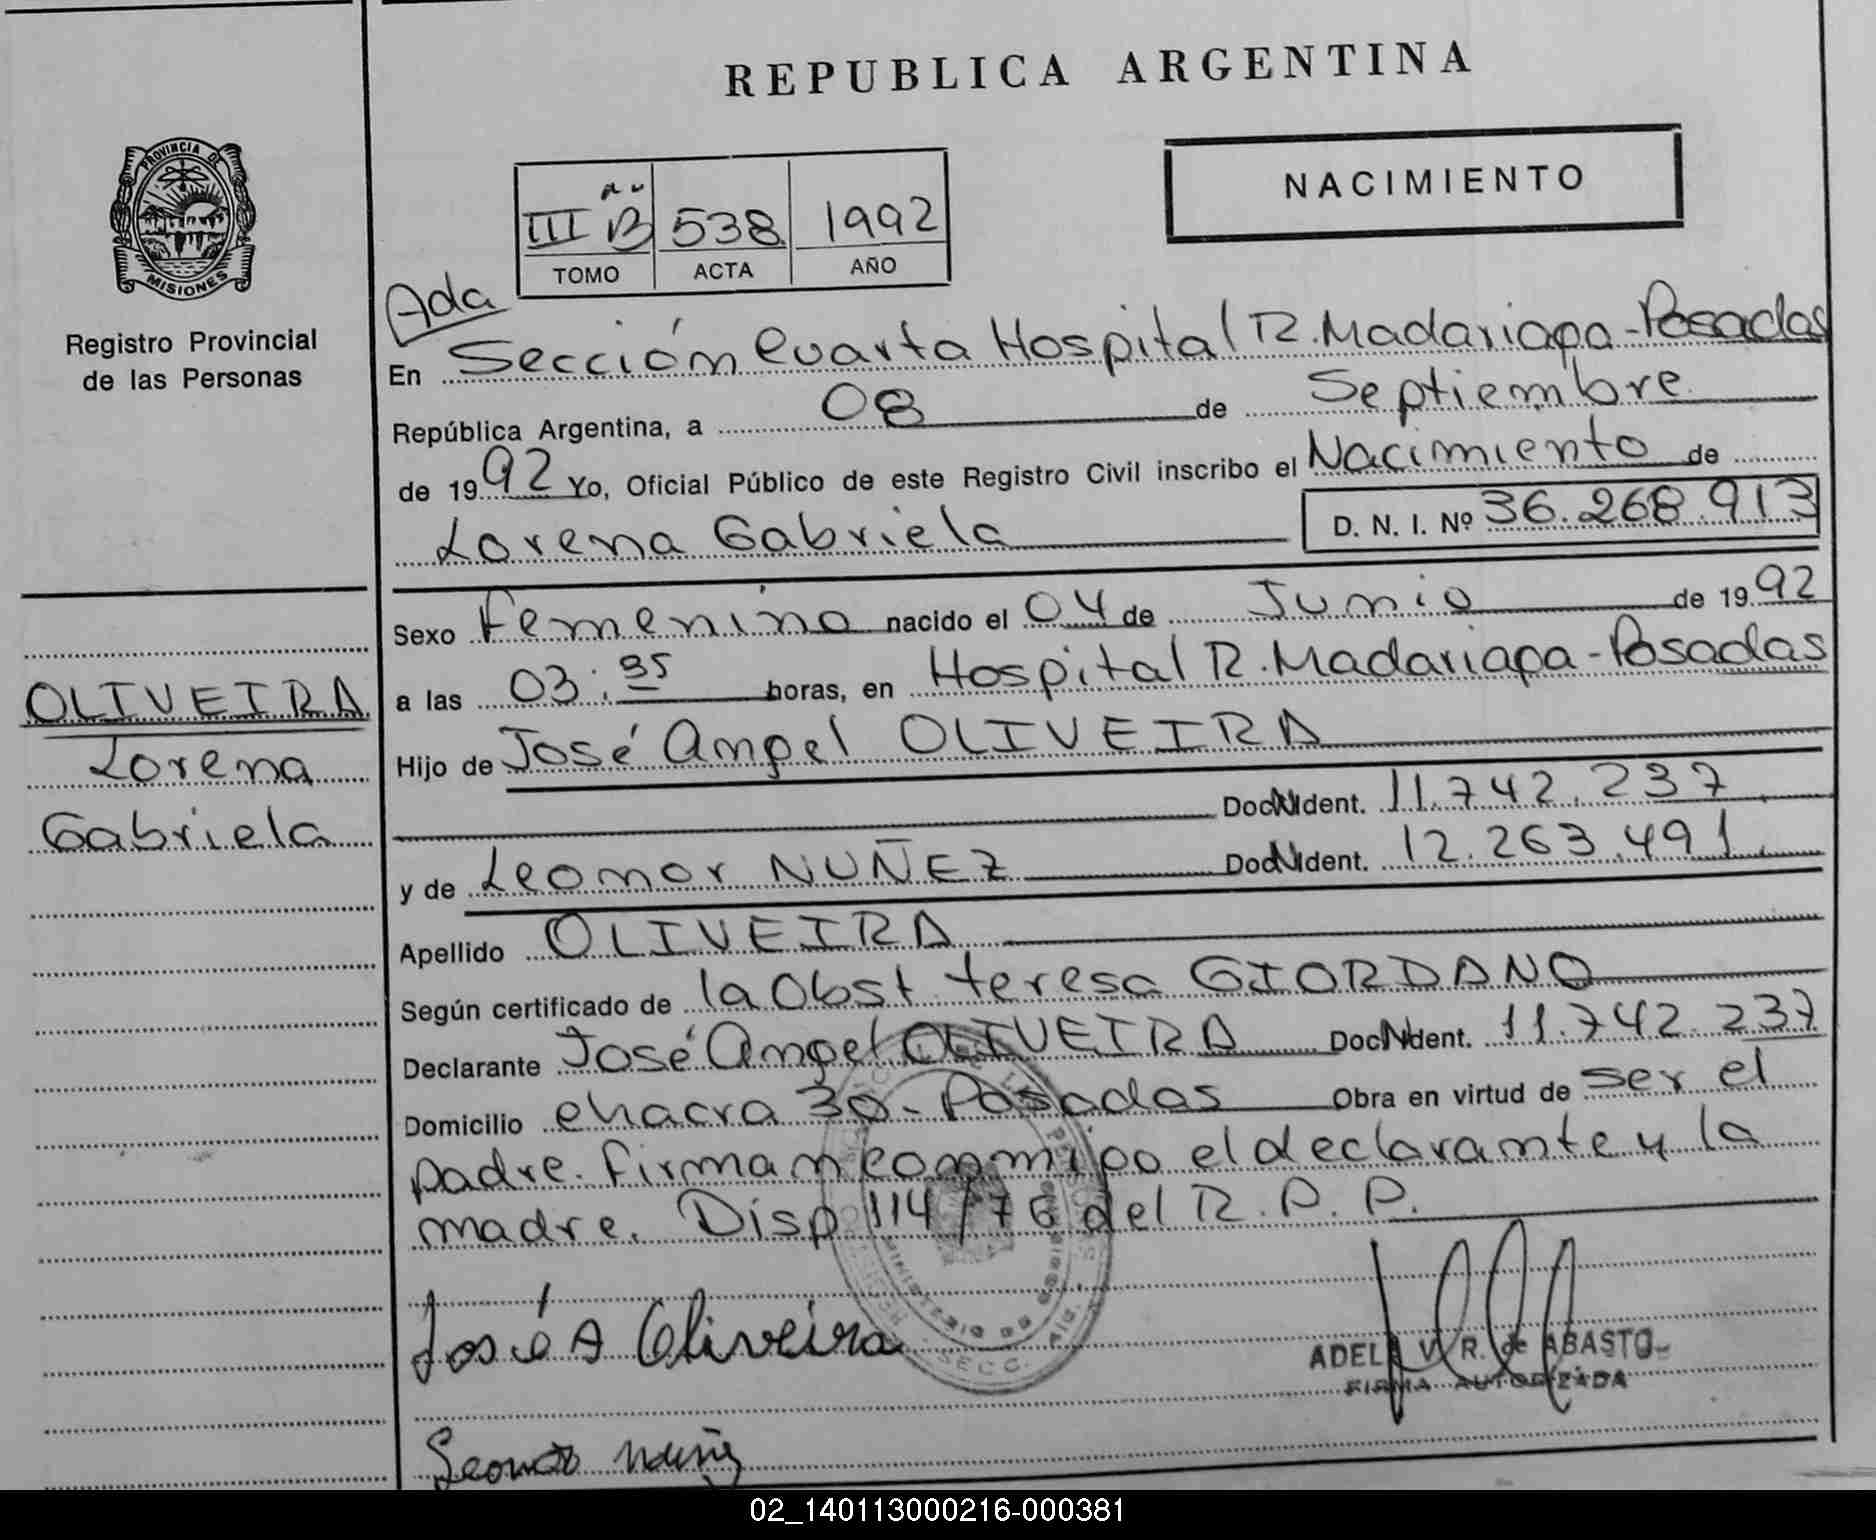 REPUBLICA ARGENTINA
PROVINCIA DE
MISIONES
Registro Provincial
de las Personas
NACIMIENTO
III B 538 1992
TOMO ACTA AÑO
Ada
En Sección Cuarta Hospital R. Madariaga - Posadas
República Argentina, a 08 de Septiembre
de 1992 Yo, Oficial Público de este Registro Civil inscribo el Nacimiento de
Lorena Gabriela D. N. I. Nº 36.268.913
Sexo Femenino nacido el 04 de Junio de 1992
a las 03:35 horas, en Hospital R. Madariaga - Posadas
OLIVEIRA
Lorena
Gabriela
Hijo de José Angel OLIVEIRA
Doc. Ident. 11.742.237
y de Leonor NUÑEZ Doc. Ident. 12.263.491
Apellido OLIVEIRA
Según certificado de la Obst. teresa GIORDANO
Declarante José Angel OLIVEIRA Doc. Ident. 11.742.237
Domicilio chacra 30 - Posadas Obra en virtud de ser el
padre. Firman conmigo el declarante y la
madre. Disp 114/76 del R.P.P.
José A Oliveira
ADELA V. R. de ABASTO
FIRMA AUTORIZADA
Leonor Nuñez
02_140113000216-000381